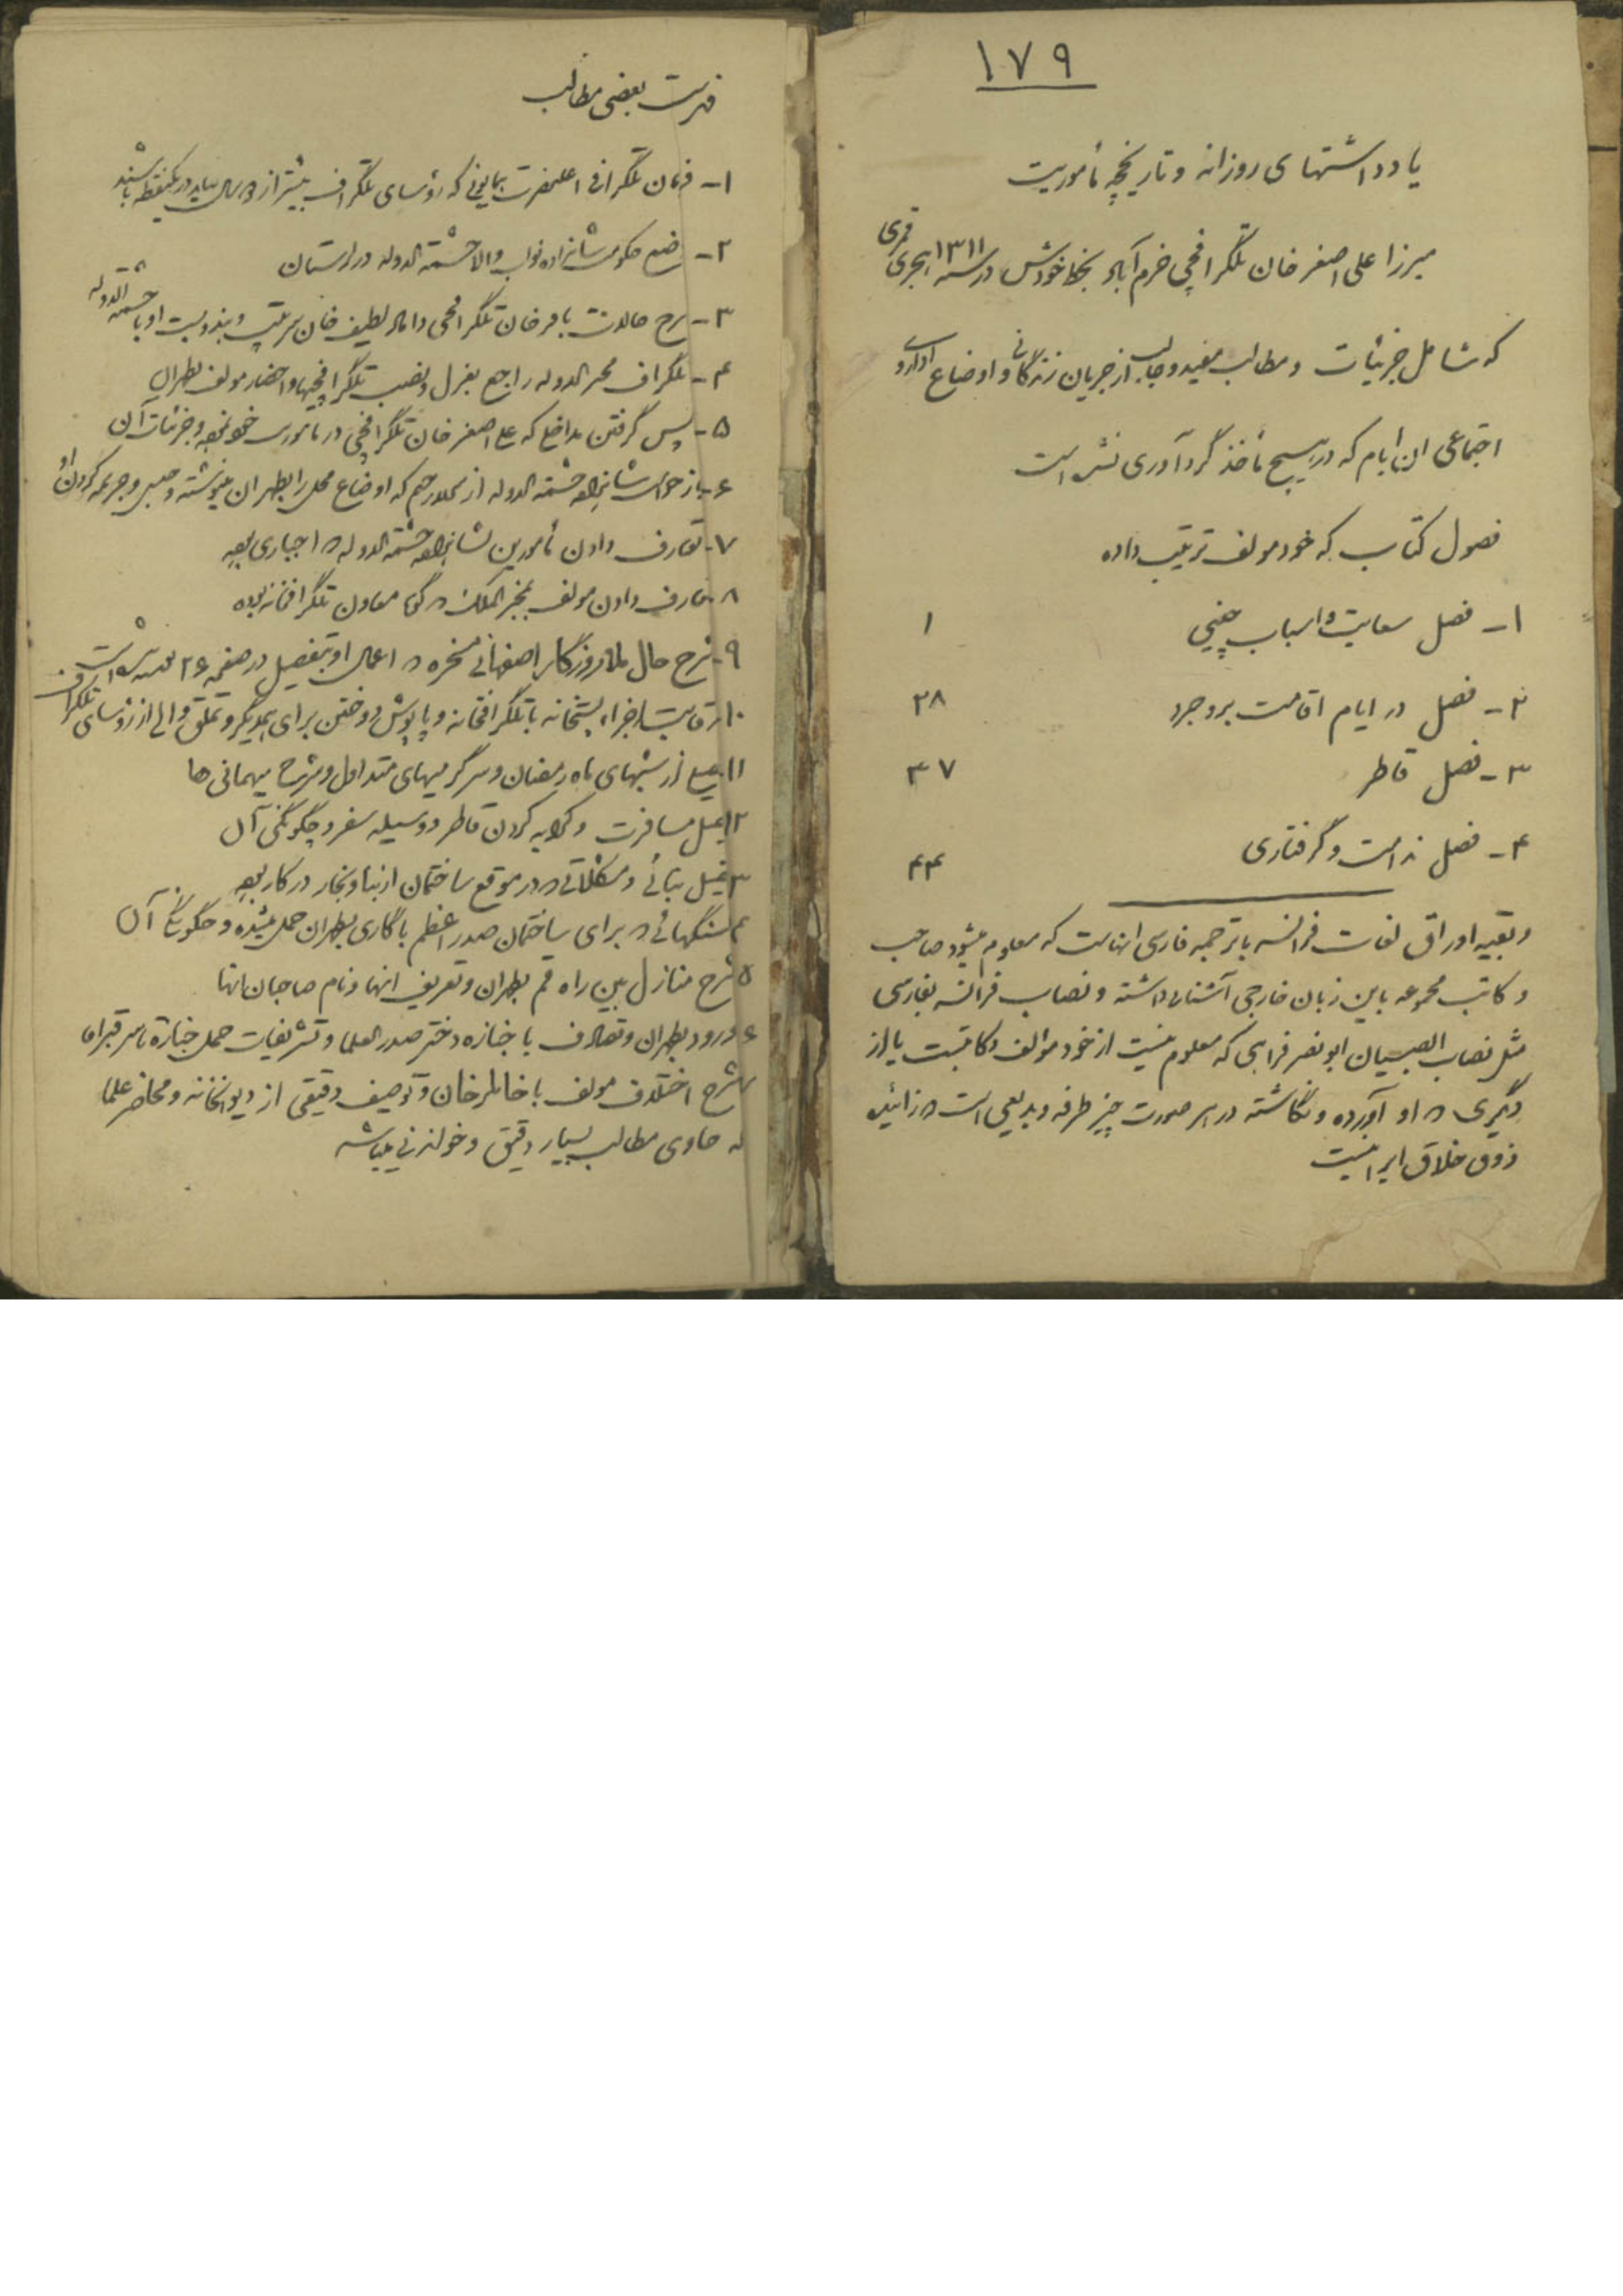 ۱۷۹
یادداشتهای روزانه و تاریخچه مأموریت
میرزا علی اصغر خان تلگرافچی خرم آباد بخط خودش در سنه ۱۳۱۱ هجری قمری
که شامل جزئیات و مطالب مفید و جالب از جریان زندگانی و اوضاع اداری و
اجتماعی ان ایام که در هیچ مأخذ گردآوری نشده است
فصول کتاب که خود مولف ترتیب داده
۱- فصل سعایت و اسباب چینی ۱
۲- فصل در ایام اقامت بروجرد ۲۸
۳- فصل قاطر ۳۷
۴- فصل ندامت و گرفتاری ۴۴
و بقیه اوراق لغات فرانسه با ترجمه فارسی انهاست که معلوم میشود صاحب
و کاتب مجموعه باین زبان خارجی آشنائی داشته و نصاب فرانسه بفارسی
مثل نصاب الصبیان ابونصر فراهی که معلوم نیست از خود مؤالف و کاتبست یا از
دیگری که او آورده و نگاشته در هر صورت چیز طرفه و بدیعی است که زائیده
ذوق خلاق ایرانیست
فهرست بعضی مطالب
۱- فرمان تلگرافی اعلیحضرت همایونی که رؤسای تلگراف بیشتر از سال نباید در یکنقطه باشند
۲- وضع حکومت شاهزاده نواب والا حشمة الدوله در لرستان
۳- شرح حالات باقرخان تلگرافچی داماد لطیف خان سرتیپ و بند و بست او با حشمة الدوله
۴- تلگراف مخبرالدوله راجع بعزل و نصب تلگرافچیها و احضار مولف بطهران
۵- پس گرفتن مداخلی که علی اصغر خان تلگرافچی در مأموریت خود نموده و جزئیات آن
۶- بازخواست شاهزاده حشمة الدوله از ملا رحیم که اوضاع محل را بطهران مینوشته و حبس و جریمه کردن او
۷- تعارف دادن مأمورین بشاهزاده حشمة الدوله که اجباری بوده
۸- تعارف دادن مولف بمخبر الملک که گویا معاون تلگرافخانه بوده
۹- شرح حال ملا روزگار اصفهانی مسخره که اعمال او بتفصیل در صفحه ۲۶
۱۰- رقابت اجزاء پستخانه با تلگرافخانه و پاپوش دوختن برای همدیگر و تملق والی از رؤسای تلگراف
۱۱- از شبهای ماه رمضان و سرگرمیهای متداول و شرح میهمانی ها
۱۲- مسافرت و کرایه کردن قاطر و وسیله سفر و چگونگی آن
۱۳- بنائی و مشکلاتی که در موقع ساختمان از بنا و نجار در کار بوده
سنگهائی که برای ساختمان صدراعظم با گاری بطهران حمل میشده و چگونگی آن
شرح منازل بین راه قم بطهران و تعریف انها و نام صاحبان انها
ورود بطهران و تصادف با جنازه دختر صدرالعلما و تشریفات حمل جنازه تا سر قبر اقا
شرح اختلاف مولف با خانلرخان و توصیف دقیقی از دیوانخانه و محاضر علما
که حاوی مطالب بسیار دقیق و خواندنی میباشد